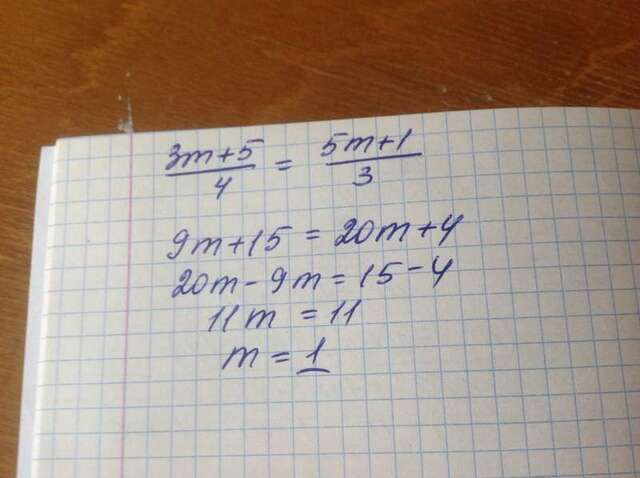 3m+5/4 = 5m+1/3
9m+15 = 20m+4
20m-9m=15-4
11m = 11
m = 1